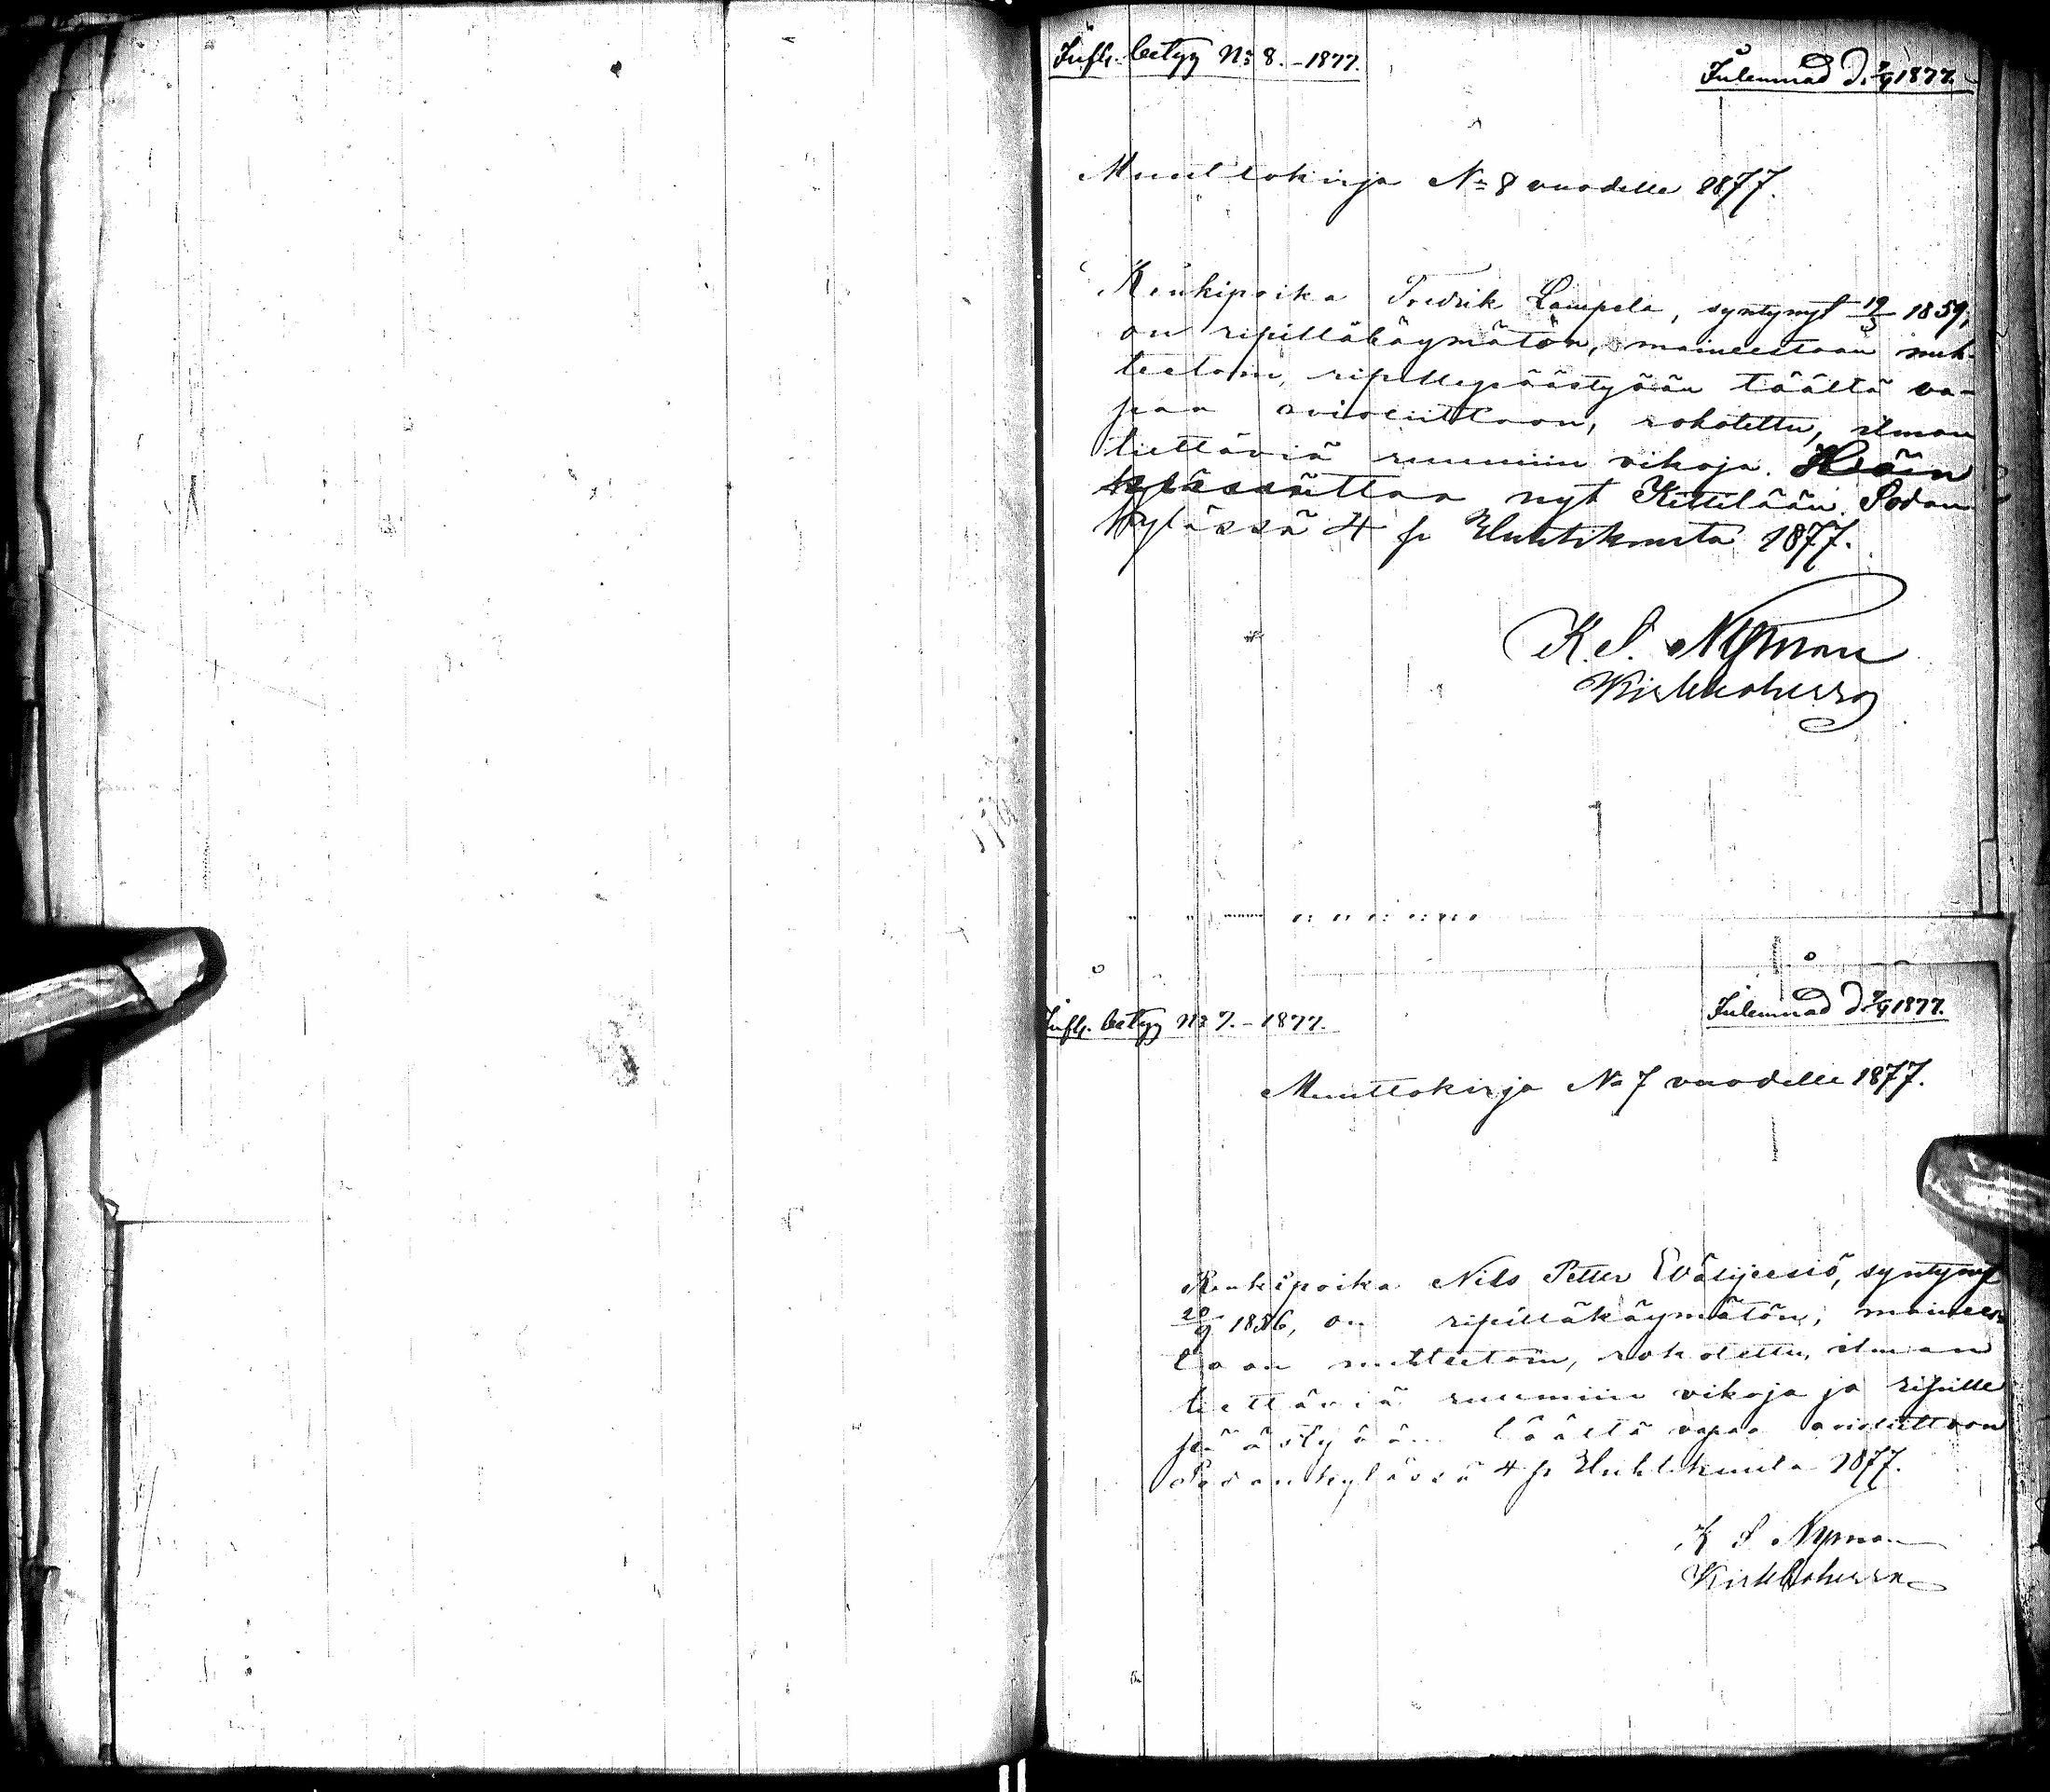 Infl. betyg No 8. - 1877.
Inlemnad d. 7/9 1877.
Muuttokirja No 8 vuodelle 1877.
Renkipoika Fredrik Lampela, syntynyt 19/5 1859,
on ripilläkäymätön, maineestaan nuh-
teetoin, ripillepäästyään täältä va-
paa avioliittoon, rokotettu, ilman
tiettäviä ruumiin vikoja. Hän
muuttaa nyt Kittilään. Sodan-
kylässä 4 p Huhtikuuta 1877.
K. S. Nyman
Kirkkoherra
Infl. betyg No 7. - 1877.
Inlemnad d. 7/9 1877.
Muuttokirja No 7 vuodelle 1877.
Renkipoika Nils Petter Välijeesiö, syntynyt
20/9 1856, on ripilläkäymätön, maines-
taan nuhteetoin, rokotettu, ilman
tiettäviä ruumiin vikoja ja ripille
päästyään täältä vapaa avioliittoon
Sodankylässä 4 p Huhtikuuta 1877.
K S Nyman
Kirkkoherra